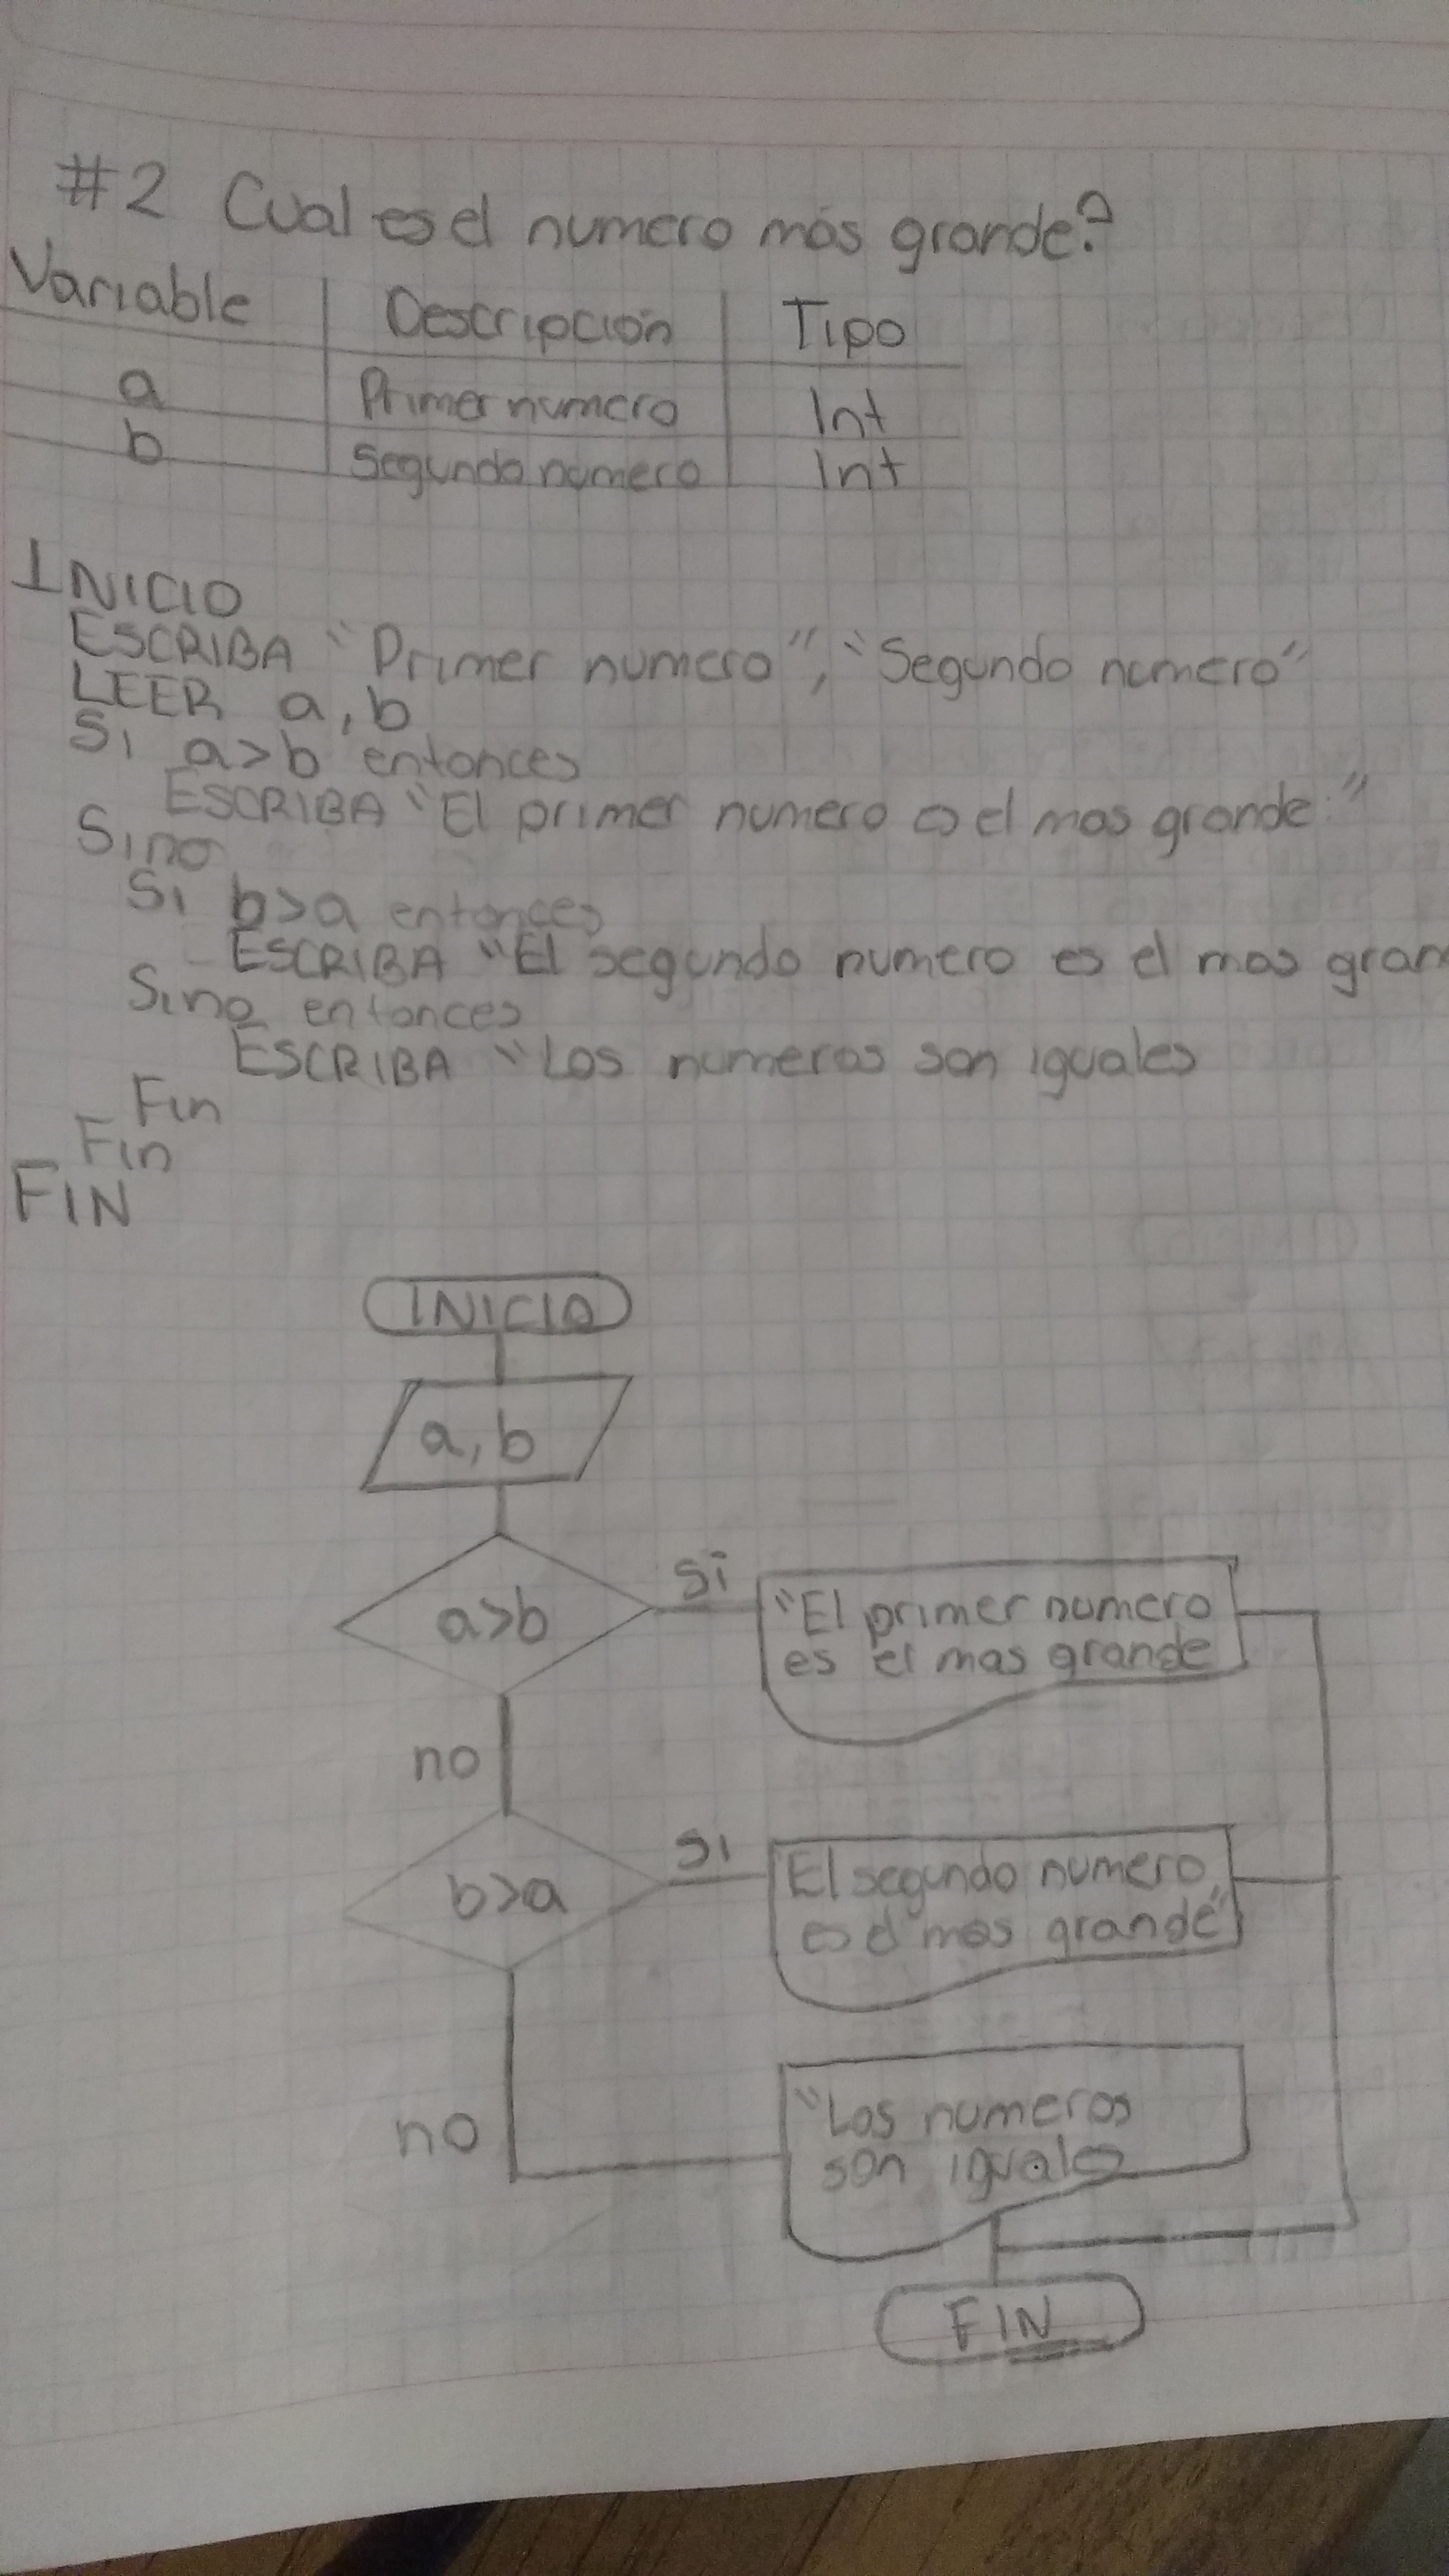 #2 Cual es el numero más grande?
Variable Descripción Tipo
a Primer numero Int
b Segundo numero Int
INICIO
ESCRIBA "Primer numero", "Segundo numero"
LEER a, b
Si a>b entonces
ESCRIBA "El primer numero es el mas grande."
Sino
Si b>a entonces
ESCRIBA "El segundo numero es el mas gran
Sino entonces
ESCRIBA "Los numeros son iguales
Fin
Fin
FIN
INICIO
a, b
a>b
Si
"El primer numero
es el mas grande
no
b>a
Si
El segundo numero
es el mas grande"
no
"Los numeros
son iguales
FIN